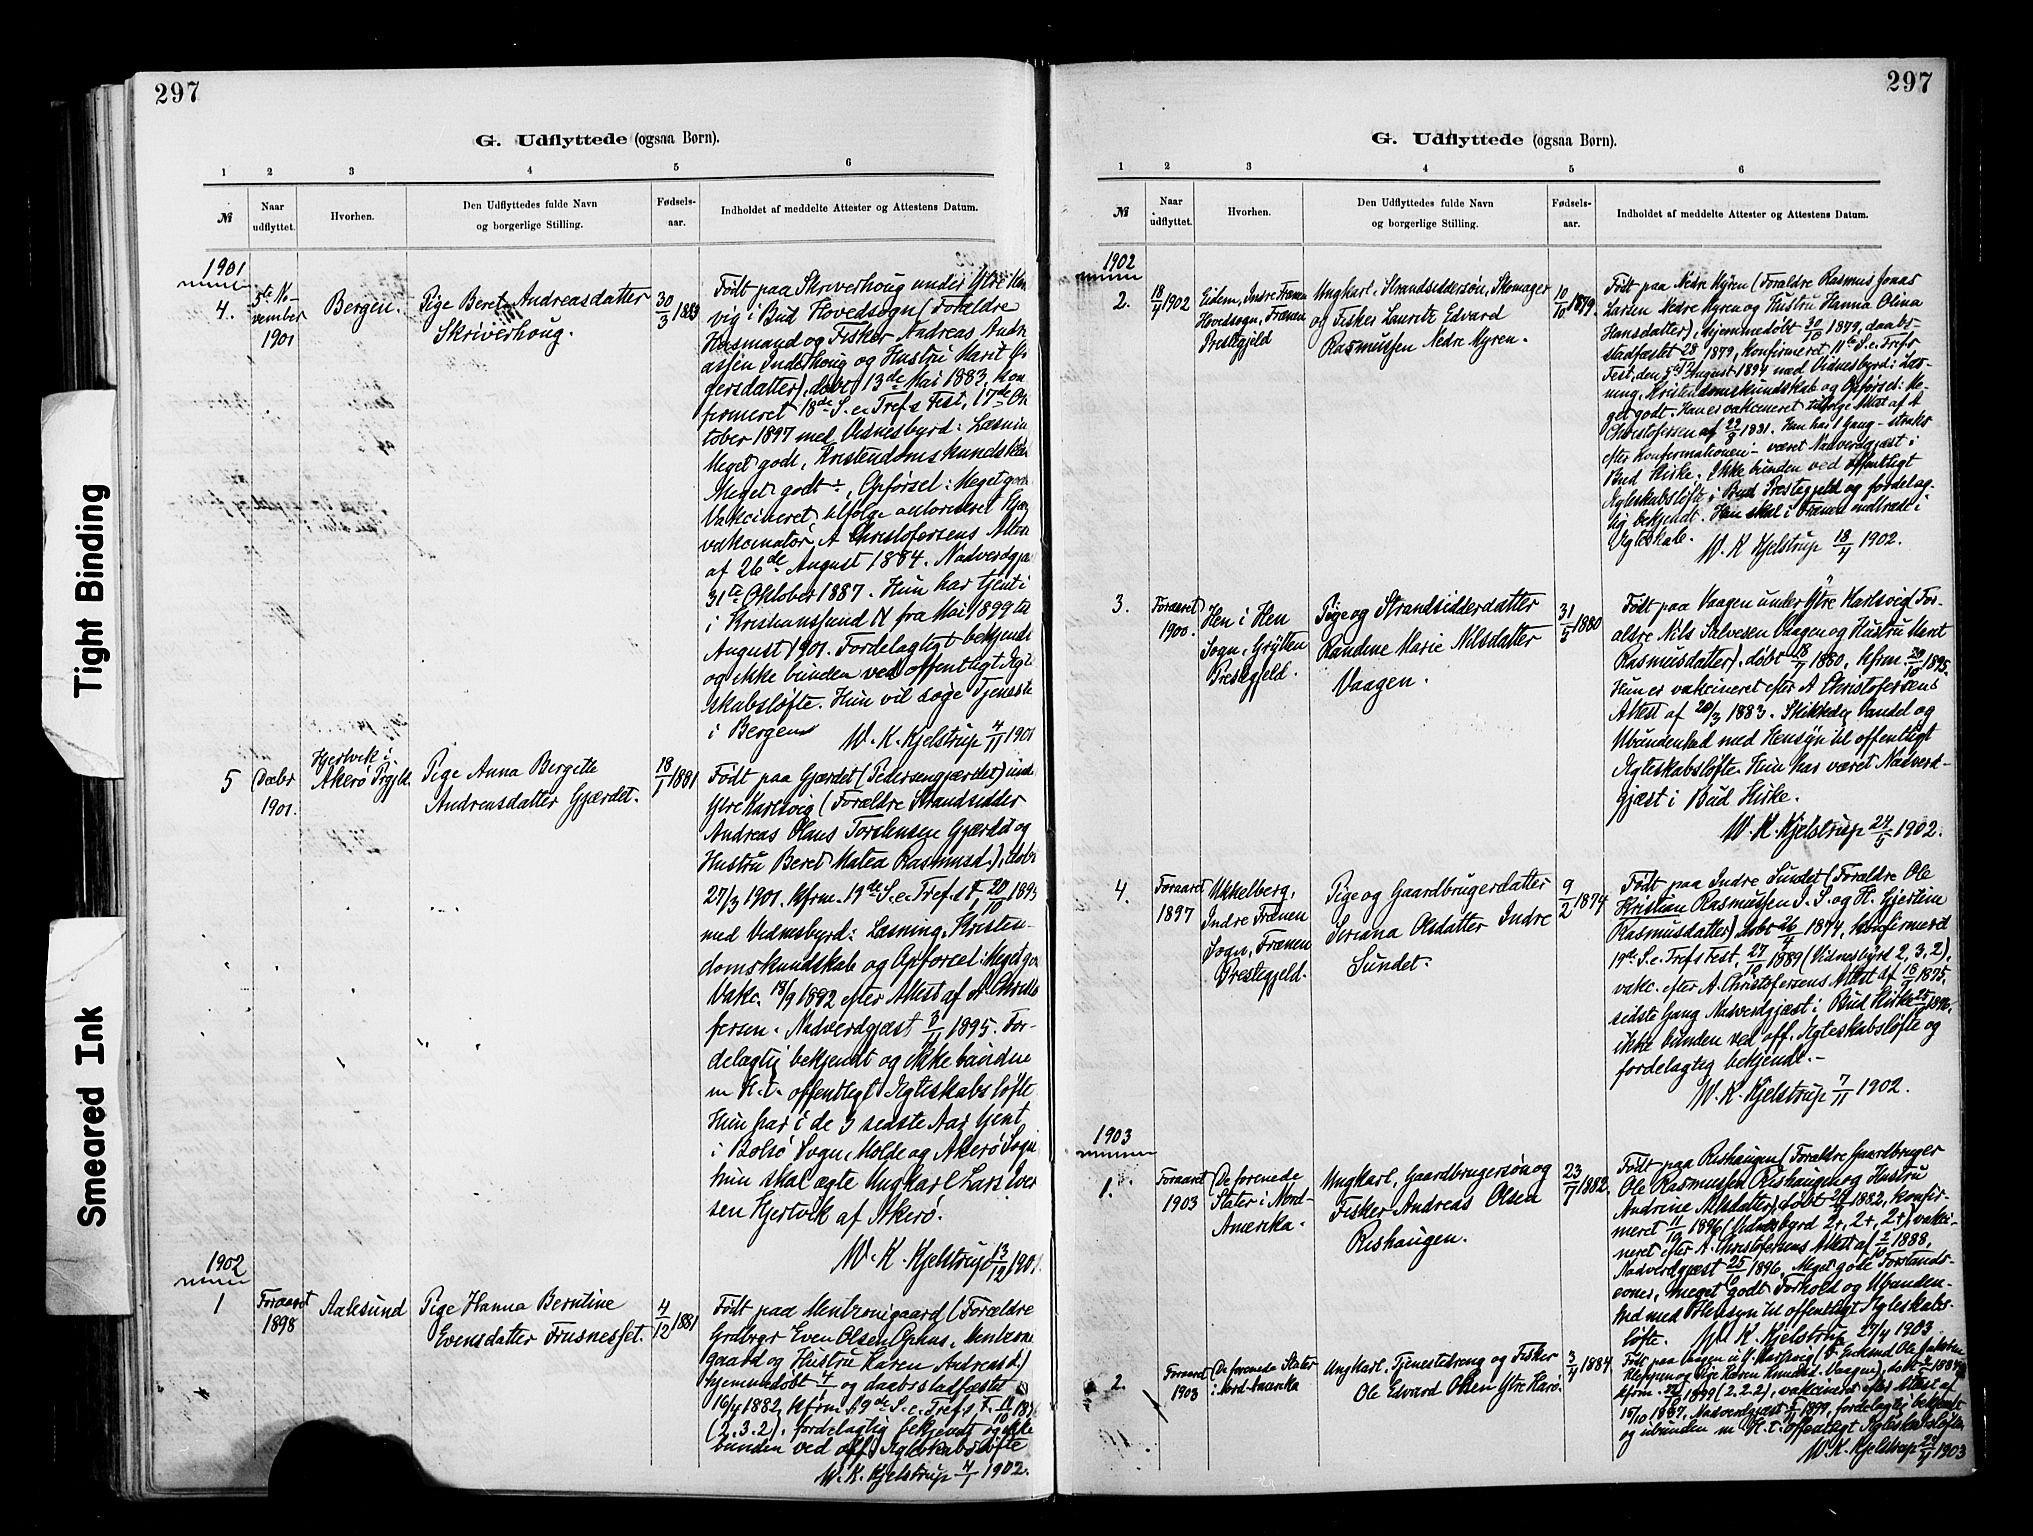 297
G. Udflyttede (ogsaa Børn).
1 2 3 4 5 6
№ Naar udflyttet. Hvorhen. Den Udflyttedes fulde Navn og borgerlige Stilling. Fødsels-aar. Indholdet af meddelte Attester og Attestens Datum.
1901
4.
5te No-
vember
1901
Bergen.
Pige Beret Andreasdatter
Skriverhoug.
30/3 1883
Født paa Skriverhoug under Ytre
vig i Bud Hovedsogn (Forældre
Husmand og Fisker Andreas Andre
assen Inderhoug og Hustru Marit
gersdatter), døbt 13de Mai 1883, Kon
firmeret 18de S. e. Tref.s Fest, 17de Ok
tober 1897 med Vidnesbyrd: Læsnin
Meget godt, Kristendomskundska
Meget godt ÷, Opførsel: Meget go
Vakcineret tilfølge autoriseret Hjæ
vakcinatør A Christofersens Attes
af 26de August 1884. Nadverdgjæ
31te Oktober 1887. Hun har tjent i
Kristiansund N fra Mai 1899 til
August 1901. Fordelagtigt bekjendt
og ikke bunden ved offentligt Ægte
skabsløfte. Hun vil søge Tjeneste
i Bergen
W. K. Kjelstrup 4/11 1901
5
Decbr
1901.
Hjertvik i
Akerø Prgjld.
Pige Anna Bergitte
Andreasdatter Gjærdet.
18/1 1881
Født paa Gjærdet (Pedersengjærdet) unde
Ytre Karlsvig (Forældre Strandsidder
Andreas Olaus Torstensen Gjærdet og
Hustru Beret Matea Rasmusd.), døbt
27/3 1901. Kfrm. 19de S. e. Tref.s F. 20/10 1895
med Vidnesbyrd: Læsning, Kristen-
domskundskab og Opførsel: Meget go
Vakc. 13/9 1892 efter Attest af A Christo
fersen. Nadverdgjæst 3/11 1895. For-
delagtig bekjendt og ikke bunden
m H. t. offentligt Ægteskabsløfte
Hun har i de 3 sidste Aar tjent
i Bolsø Sogn, Molde og Akerø Sogn
hun skal ægte Ungkarl Lars Iver
sen Hjertvik af Akerø.
W. K. Kjelstrup 13/12 1901.
1902
1
Foraaret
1898
Aalesund
Pige Hanna Berntine
Evensdatter Frusnesset.
4/12 1881
Født paa Mentzonigaard (Forældre
Grdbrgr Even Olsen Ophus, Mentzoni
gaard og Hustru Karen Andreasd.)
hjemmedøbt 4/ og daabsstadfæstet
16/4 1882, Kfrm. 19de S. e. Tref.s F. 11/10 1896
(2.3.2), fordelagtig bekjendt og ikke
bunden ved off. Ægteskabsløfte
W. K. Kjelstrup 4/1 1902.
297
G. Udflyttede (ogsaa Børn).
1 2 3 4 5 6
№ Naar udflyttet. Hvorhen. Den Udflyttedes fulde Navn og borgerlige Stilling. Fødsels-aar. Indholdet af meddelte Attester og Attestens Datum.
1902
2.
18/4 1902
Eidem, Indre Frænen
Hovedsogn, Frænen
Prestegjeld
Ungkarl, Strandsiddersøn, Skomager
og Fisker Lauritz Edvard
Rasmussen Nedre Myren.
10/10 1879.
Født paa Nedre Myren (Forældre Rasmus Jonas
Larsen Nedre Myren og Hustru Hanna Olina
Hansdatter), hjemmedøbt 30/10 1879, daabs-
stadfæstet 28/ 1879, Konfirmeret 11te S. e. Tref.s
Fest, den 5te August 1894 med Vidnesbyrd i Læs-
ning, Kristendomskundskab og Opførsel: Me-
get godt. Han er vakcineret tilfølge Attest af A
Christofersen af 22/3 1881. Han har 1 Gang - straks
efter Konfirmationen - været Nadverdgjæst i
Bud Kirke. Ikke bunden ved offentligt
Ægteskabsløfte i Bud Prestegjeld og fordelag-
tig bekjendt. Han skal i Frænen indtræde i
Ægteskab.
W. K Kjelstrup 18/4 1902.
3.
Foraaret
1900.
Hen i Hen
Sogn, Grytten
Prestegjeld.
Pige og Strandsidderdatter
Randine Marie Nilsdatter
Vaagen.
31/5 1880
Født paa Vaagen under Ytre Karlsvig (For-
ældre Nils Salvesen Vaagen og Hustru Marit
Rasmusdatter), døbt 18/7 1880, Kfrm. 20/10 1895.
Hun er vakcineret efter A Christofersens
Attest af 20/3 1883. Skikkelig Vandel og
Ubundenhed med Hensyn til offentligt
Ægteskabsløfte. Hun har været Nadverd-
gjæst i Bud Kirke.
W. K. Kjelstrup 24/5 1902.
4.
Foraaret
1897
Ukkelberg,
Indre Frænen
Sogn, Frænen
Prestegjeld.
Pige og Gaardbrugerdatter
Seriana Olsdatter Indre
Sundet.
9/2 1874
Født paa Indre Sundet (Forældre Ole
Kristian Rasmussen I. S. og H. Gjertine
Rasmusdatter) døbt 26/4 1874, konfirmered
19de S. e. Tref.s Fest, 27/10 1889 (Vidnesbyrd 2, 3, 2),
vakc. efter A. Christofersens Attest af 18/9 1875,
sidste Gang Nadverdgjæst i Bud Kirke 25/ 1896,
ikke bunden ved off. Ægteskabsløfte og
fordelagtig bekjendt. -
W. K. Kjelstrup 7/11 1902.
1903
1.
Foraaret
1903
De forenede
Stater i Nord-
Amerika.
Ungkarl, Gaardbrugersøn og
Fisker Andreas Olsen
Rishaugen.
23/7 1882.
Født paa Rishaugen (Forældre Gaardbruger
Ole Rasmussen Rishaugen og Hustru
Andrine Nilsdatter), døbt 1882, Konfir-
meret 11/10 1896 (Vidnesbyrd 2+, 2+, 2+), vakci-
neret efter A. Christofersens Attest af 2/10 1888,
Nadverdgjæst 25/10 1896. Meget gode Forstands-
evner, meget godt Forhold og Ubunden-
hed med Hensyn til offentligt Ægteskabs-
løfte. W. K. Kjelstrup 27/4 1903
2.
Foraaret
1903
De forenede Stater
i Nord-Amerika
Ungkarl, Tjenestedreng og Fisker
Ole Edvard Olsen Ytre Harø.
3/4 1884
Født paa Vaagen u. Y. Karlsvig (F. Enkemd Ole Jakobsen
Kleppen og Pige Karen Knudsd. Vaagen), døbt 1884
Kfrm. 1899 (2.2.2), vakcineret efter Attest af
15/10 1887, Nadverdgjæst 1899, fordelagtig bekjendt
og ubunden m. H. t. offentligt Ægteskabsløfte
W. K. Kjelstrup 29/4 1903
Tight Binding
Smeared Ink